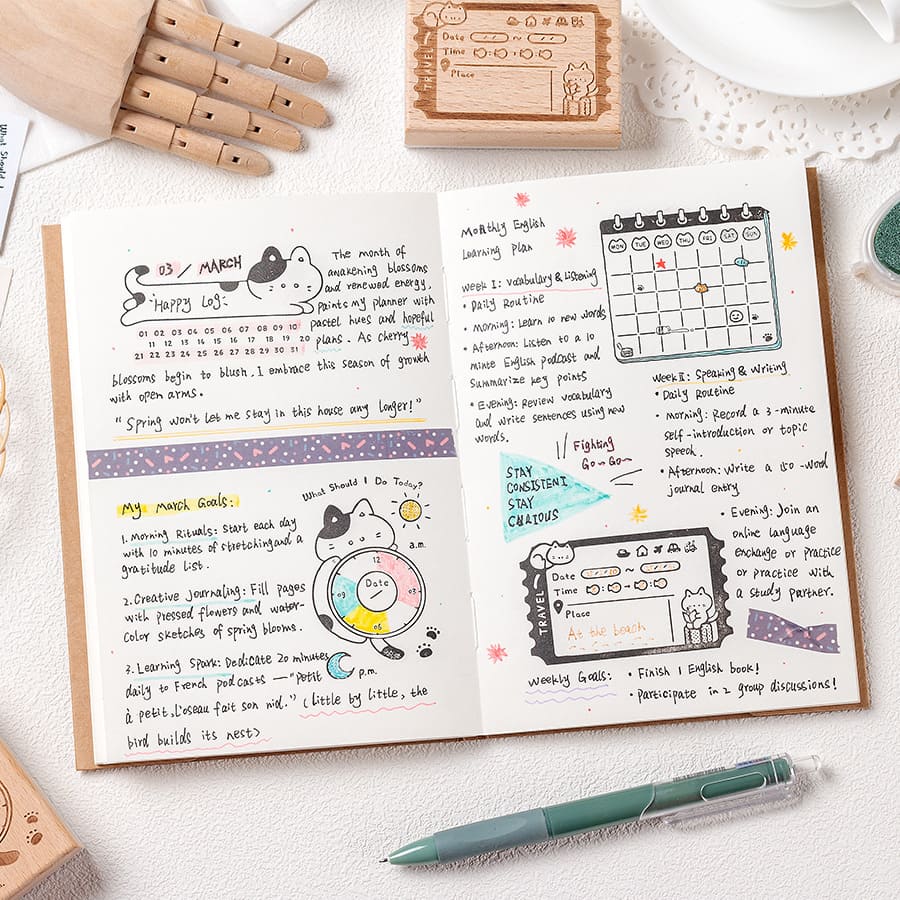 TRAVEL
Date ~
Time
Place
What Should I
03 / MARCH
Happy Log
01 02 03 04 05 06 07 08 09 10
11 12 13 14 15 16 17 18 19 20
21 22 23 24 25 26 27 28 29 30 31
The month of
awakening blossoms
and renewed energy,
paints my planner with
pastel hues and hopeful
plans. As cherry
blossoms begin to blush, I embrace this season of growth
with open arms.
"Spring won't let me stay in this house any longer!"
My March Goals:
1. Morning Rituals: Start each day
with 10 minutes of stretching and a
gratitude list.
2. Creative Journaling: Fill pages
with pressed flowers and water-
color sketches of spring blooms.
3. Learning Spark: Dedicate 20 minutes
daily to French podcasts — "Petit
à petit, L'oseau fait son nid." (little by little, the
bird builds its nest>
What Should I Do Today?
a.m.
12
03
06
09
Date
/
p.m.
Monthly English
Learning Plan
Week I: Vocabulary & Listening
• Daily Routine
• Morning: Learn 10 new words
• Afternoon: Listen to a 10
minte English podcast and
Summarize key points
• Evening: Review vocabulary
and write sentences using new
words.
MON TUE WED THU FRI SAT SUN
Week II: Speaking & Writing
• Daily Routine
• Morning: Record a 3-minute
self-introduction or topic
speech.
• Afternoon: Write a 150-word
journal entry
• Evening: Join an
online language
exchange or practice
or practice with
a study partner.
Fighting
Go~Go~
STAY
CONSISTENT
STAY
CURIOUS
TRAVEL
Date ~
Time
Place
At the beach
Weekly Goals: • Finish 1 English book!
• Participate in 2 group discussions!